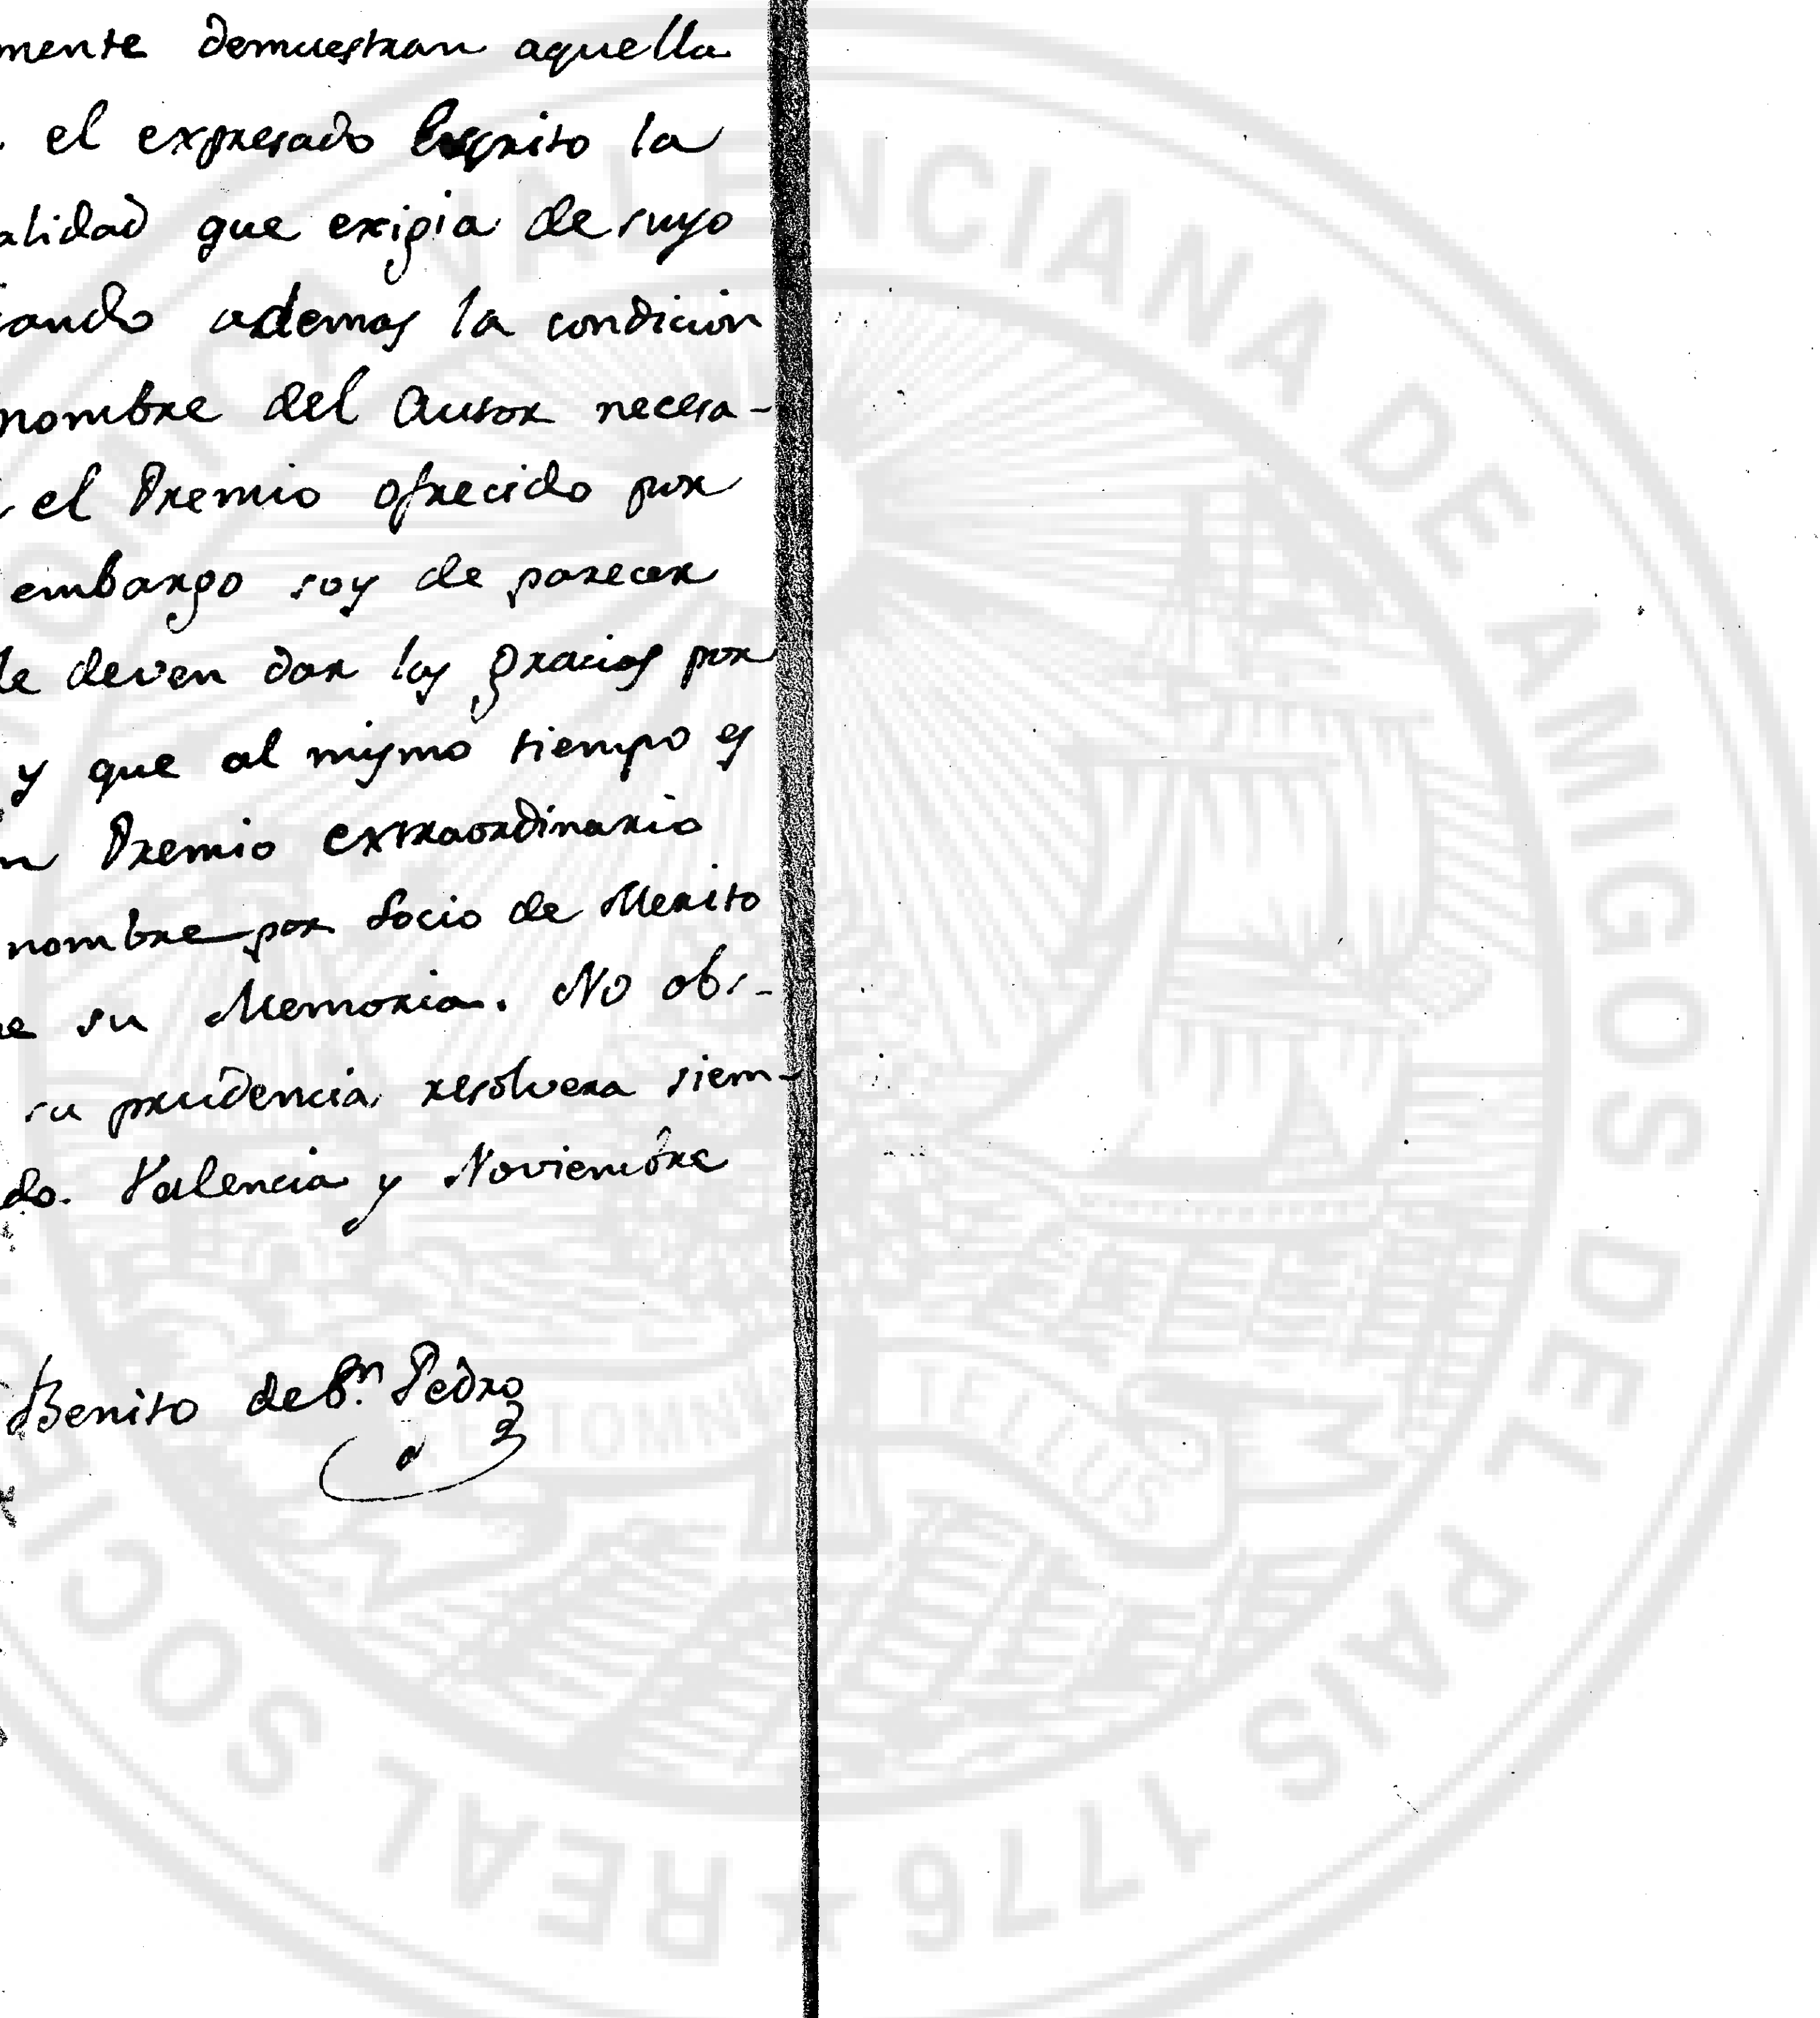 mente demuestran aquella
el expresado Escrito la
alidad que exigia de suyo
ando ademas la condicion
nombre del Autor necesa-
el Premio ofrecido por
embargo soy de parecer
le deven dar las gracias por
y que al mismo tiempo es
n Premio extraordinario
nombre por Socio de Merito
e su Memoria. No obs-
su prudencia resolvera siem-
do. Valencia y Noviembre
Benito de Sn. Pedro
REAL SOCIE
VALENCIANA DE AMIGOS DEL PAIS 1776